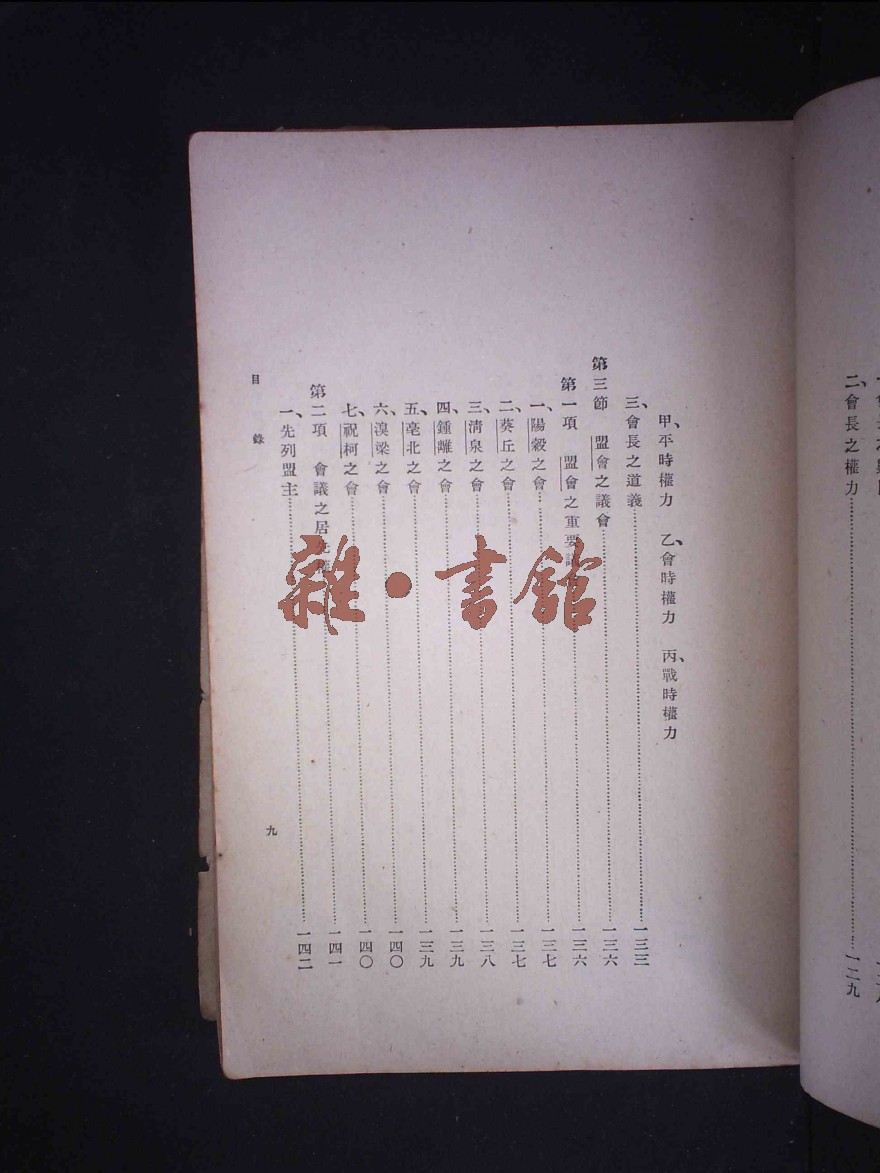 二、會長之權力……一二九
甲、平時權力　乙、會時權力　丙、戰時權力
三、會長之道義……一三三
第三節　盟會之議會……一三六
第一項　盟會之重要……一三六
一、陽穀之會……一三七
二、葵丘之會……一三七
三、清泉之會……一三八
四、鍾離之會……一三九
五、亳北之會……一三九
六、溴梁之會……一四〇
七、祝柯之會……一四〇
第二項　會議之居先權……一四一
一、先列盟主……一四二
目錄
九
雜·書館